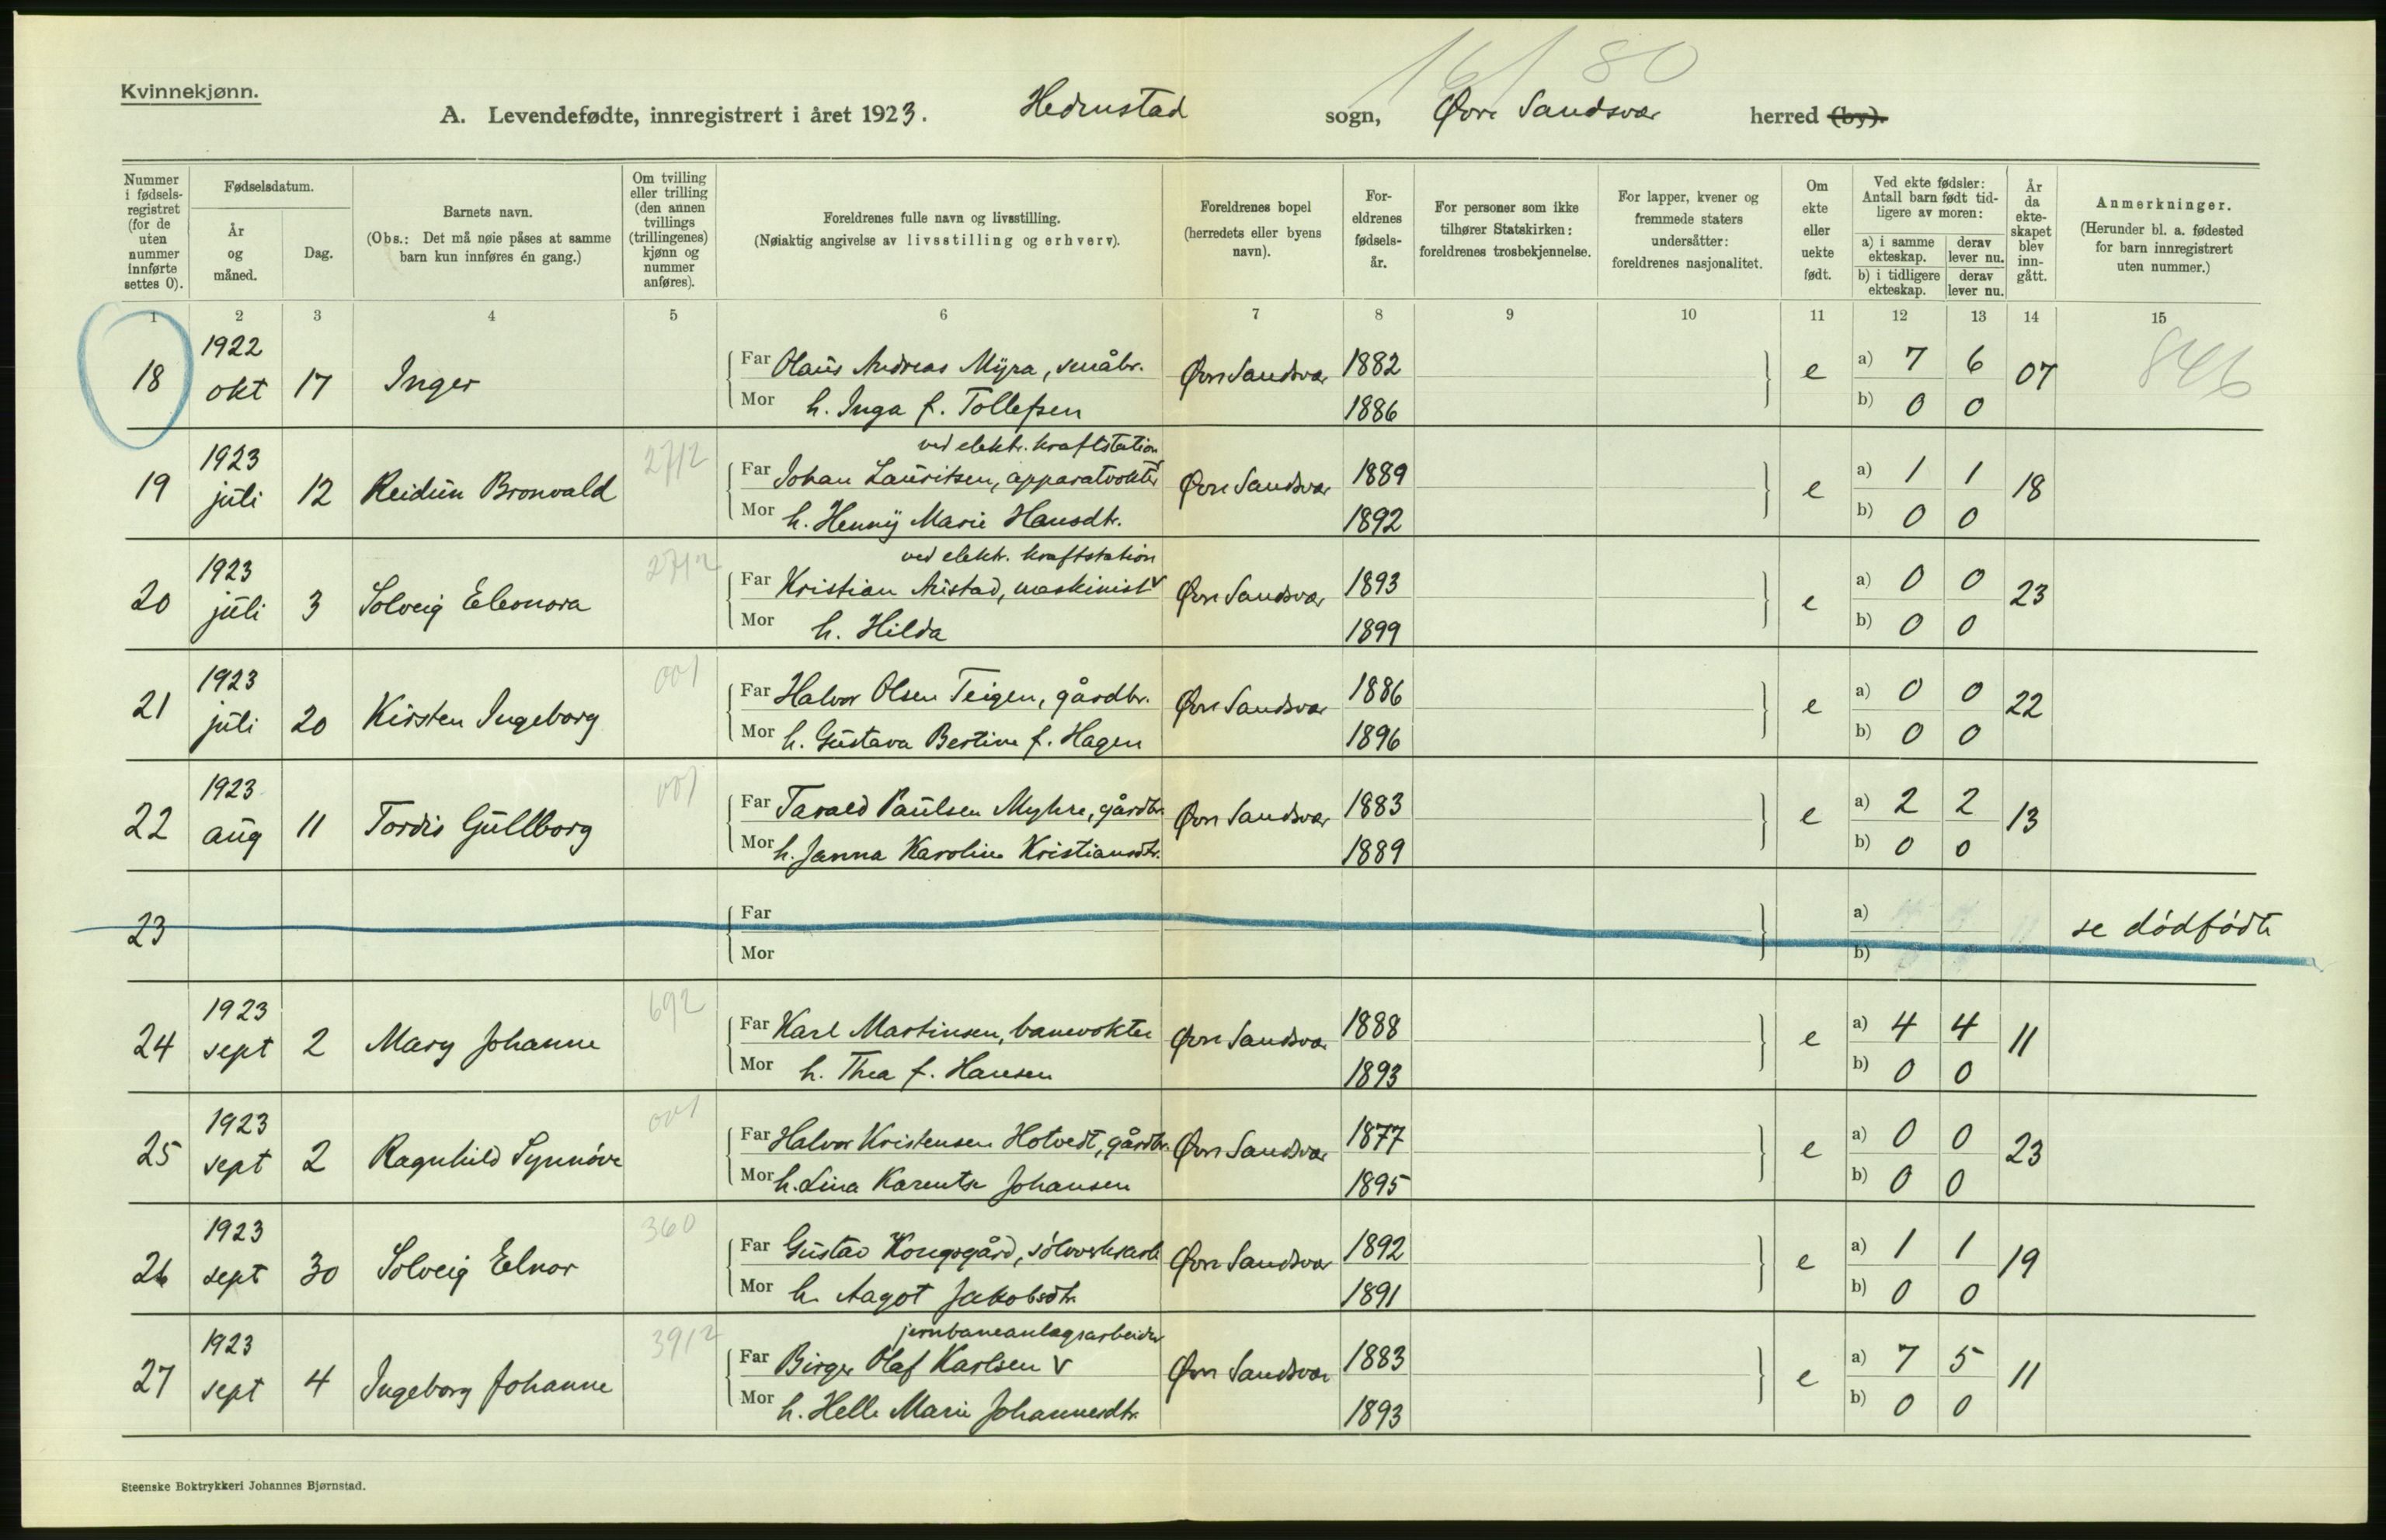 Kvinnekjønn.
16/80
A. Levendefødte, innregistrert i året 1923. Hedenstad sogn, Øvre Sandsvær herred (by).
Nummer i fødselsregistret (for de uten nummer innførte settes 0).
Fødselsdatum.
År og måned.
Dag.
Barnets navn.
(Obs.: Det må nøie påses at samme barn kun innføres én gang.)
Om tvilling eller trilling (den annen tvillings (trillingenes) kjønn og nummer anføres).
Foreldrenes fulle navn og livsstilling.
(Nøiaktig angivelse av livsstilling og erhverv).
Foreldrenes bopel (herredets eller byens navn).
Foreldrenes fødselsår.
For personer som ikke tilhører Statskirken: foreldrenes trosbekjennelse.
For lapper, kvener og fremmede staters undersåtter: foreldrenes nasjonalitet.
Om ekte eller uekte født.
Ved ekte fødsler: Antall barn født tidligere av moren:
a) i samme ekteskap. derav lever nu.
b) i tidligere ekteskap. derav lever nu.
År da ekteskapet blev inngått.
Anmerkninger.
(Herunder bl. a. fødested for barn innregistrert uten nummer.)
1 2 3 4 5 6 7 8 9 10 11 12 13 14 15
18 1922 okt 17 Inger Far Olaus Andreas Myra, småbr. Øvre Sandsvær 1882 e a) 7 6 07 846
Mor h. Inga f. Tollefsen 1886 b) 0 0
ved elektr. kraftstation
19 1923 juli 12 Reidun Bronvald 2712 Far Johan Lauritsen, apparatvokter Øvre Sandsvær 1889 e a) 1 1 18
Mor h. Henny Marie Hansdtr. 1892 b) 0 0
ved elektr. kraftstation
20 1923 juli 3 Solveig Eleonora 2712 Far Kristian Aristad, maskinist v Øvre Sandsvær 1893 e a) 0 0 23
Mor h. Hilda 1899 b) 0 0
21 1923 juli 20 Kirsten Ingeborg 001 Far Halvor Olsen Teigen, gårdbr. Øvre Sandsvær 1886 e a) 0 0 22
Mor h. Gustava Bertine f. Hagen 1896 b) 0 0
22 1923 aug 11 Tordis Gullborg 001 Far Tarald Paulsen Myhre, gårdbr. Øvre Sandsvær 1883 e a) 2 2 13
Mor h. Janna Karoline Kristiansdtr. 1889 b) 0 0
23 Far a) se dødfødte
Mor b)
24 1923 sept 2 Mary Johanne 692 Far Karl Martinsen, banevokter Øvre Sandsvær 1888 e a) 4 4 11
Mor h. Thea f. Hansen 1893 b) 0 0
25 1923 sept 2 Ragnhild Synnöve 001 Far Halvor Kristensen Hotvedt, gårdbr. Øvre Sandsvær 1877 e a) 0 0 23
Mor h. Lina Karentse Johansen 1895 b) 0 0
26 1923 sept 30 Solveig Elnor 360 Far Gustav Kongsgård, sölvverksarb Øvre Sandsvær 1892 e a) 1 1 19
Mor h. Aagot Jakobsdtr. 1891 b) 0 0
jernbaneanlegsarbeider
27 1923 sept 4 Ingeborg Johanne 3912 Far Birger Olaf Karlsen v Øvre Sandsvær 1883 e a) 7 5 11
Mor h. Helle Marie Johannesdtr. 1893 b) 0 0
Steenske Boktrykkeri Johannes Bjørnstad.